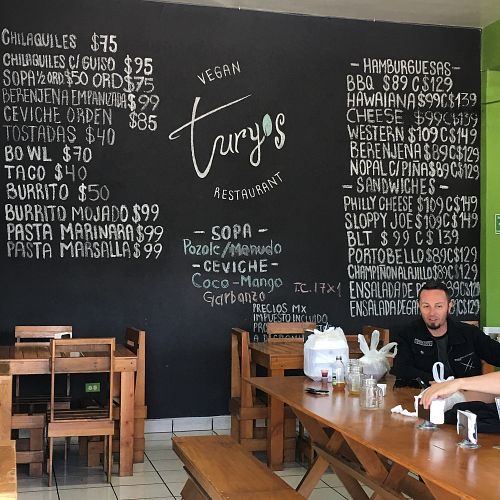 CHILAQUILES $75
CHILAQUILES C/GUISO $95
SOPA ½ ORD $50 ORD $75
BERENJENA EMPANIZADA $99
CEVICHE ORDEN $85
TOSTADAS $40
BOWL $70
TACO $40
BURRITO $50
BURRITO MOJADO $99
PASTA MARINARA $99
PASTA MARSALLA $99
VEGAN
Tury's
RESTAURANT
- SOPA -
Pozole/Menudo
- CEVICHE -
Coco-Mango
Garbanzo
T.C. 17x1
PRECIOS MX
IMPUESTO INCLUIDO
- HAMBURGUESAS -
BBQ $89 C $129
HAWAIANA $99 C $139
CHEESE $99 C $139
WESTERN $109 C $149
BERENJENA $89 C $129
NOPAL C/PIÑA $89 C $129
- SANDWICHES -
PHILLY CHEESE $109 C $149
SLOPPY JOE $109 C $149
BLT $99 C $139
PORTOBELLO $89 C $129
CHAMPIÑON AL AJILLO $89 C $129
ENSALADA DE $89 C $129
ENSALADA DE